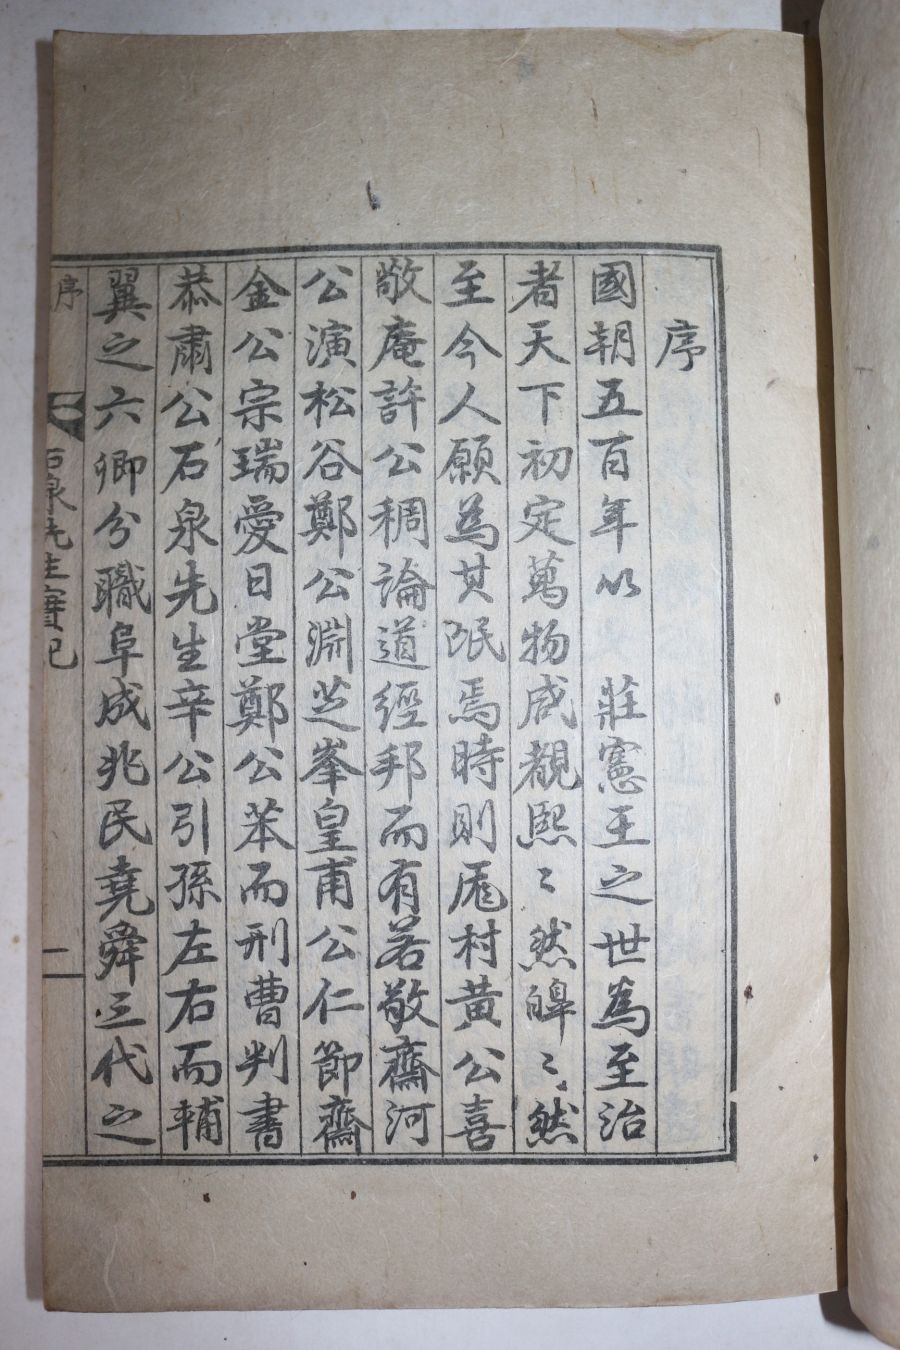 序
國朝五百年以 莊憲王之世爲至治
者天下初定萬物咸覩熙〻然皥〻然
至今人願爲其氓焉時則厖村黃公喜
敬庵許公稠論道經邦而有若敬齋河
公演松谷鄭公淵芝峯皇甫公仁節齋
金公宗瑞愛日堂鄭公苯而刑曹判書
恭肅公石泉先生辛公引孫左右而輔
翼之六卿分職阜成兆民堯舜三代之
序 石泉先生實記 一